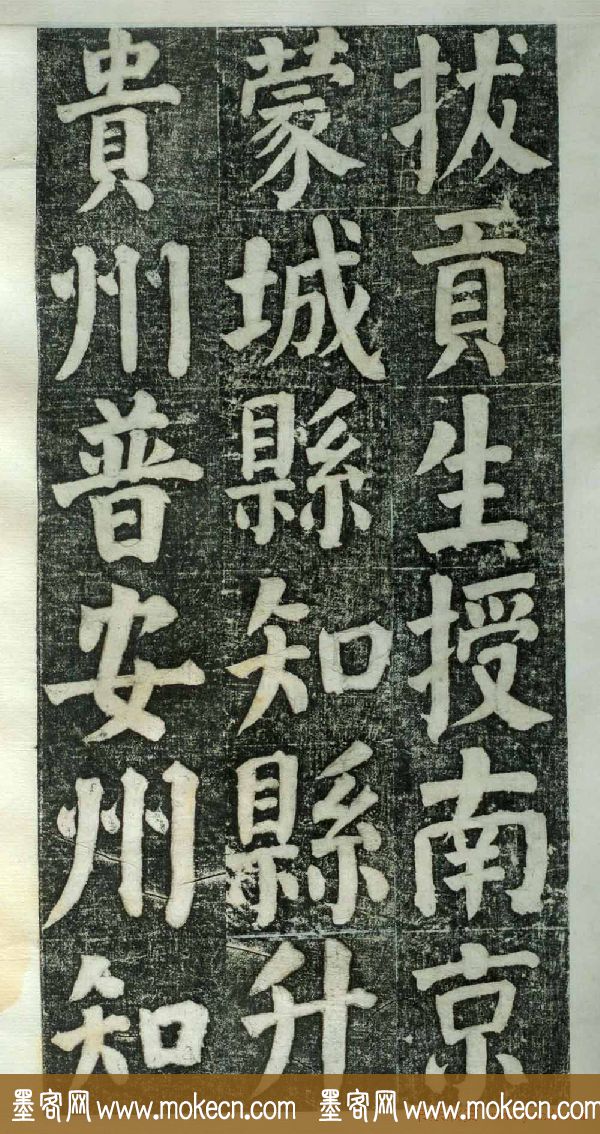 拔貢生授南京
蒙城縣知縣升
貴州普安州知
墨客网 www.mokecn.com 墨客网 www.mokecn.com